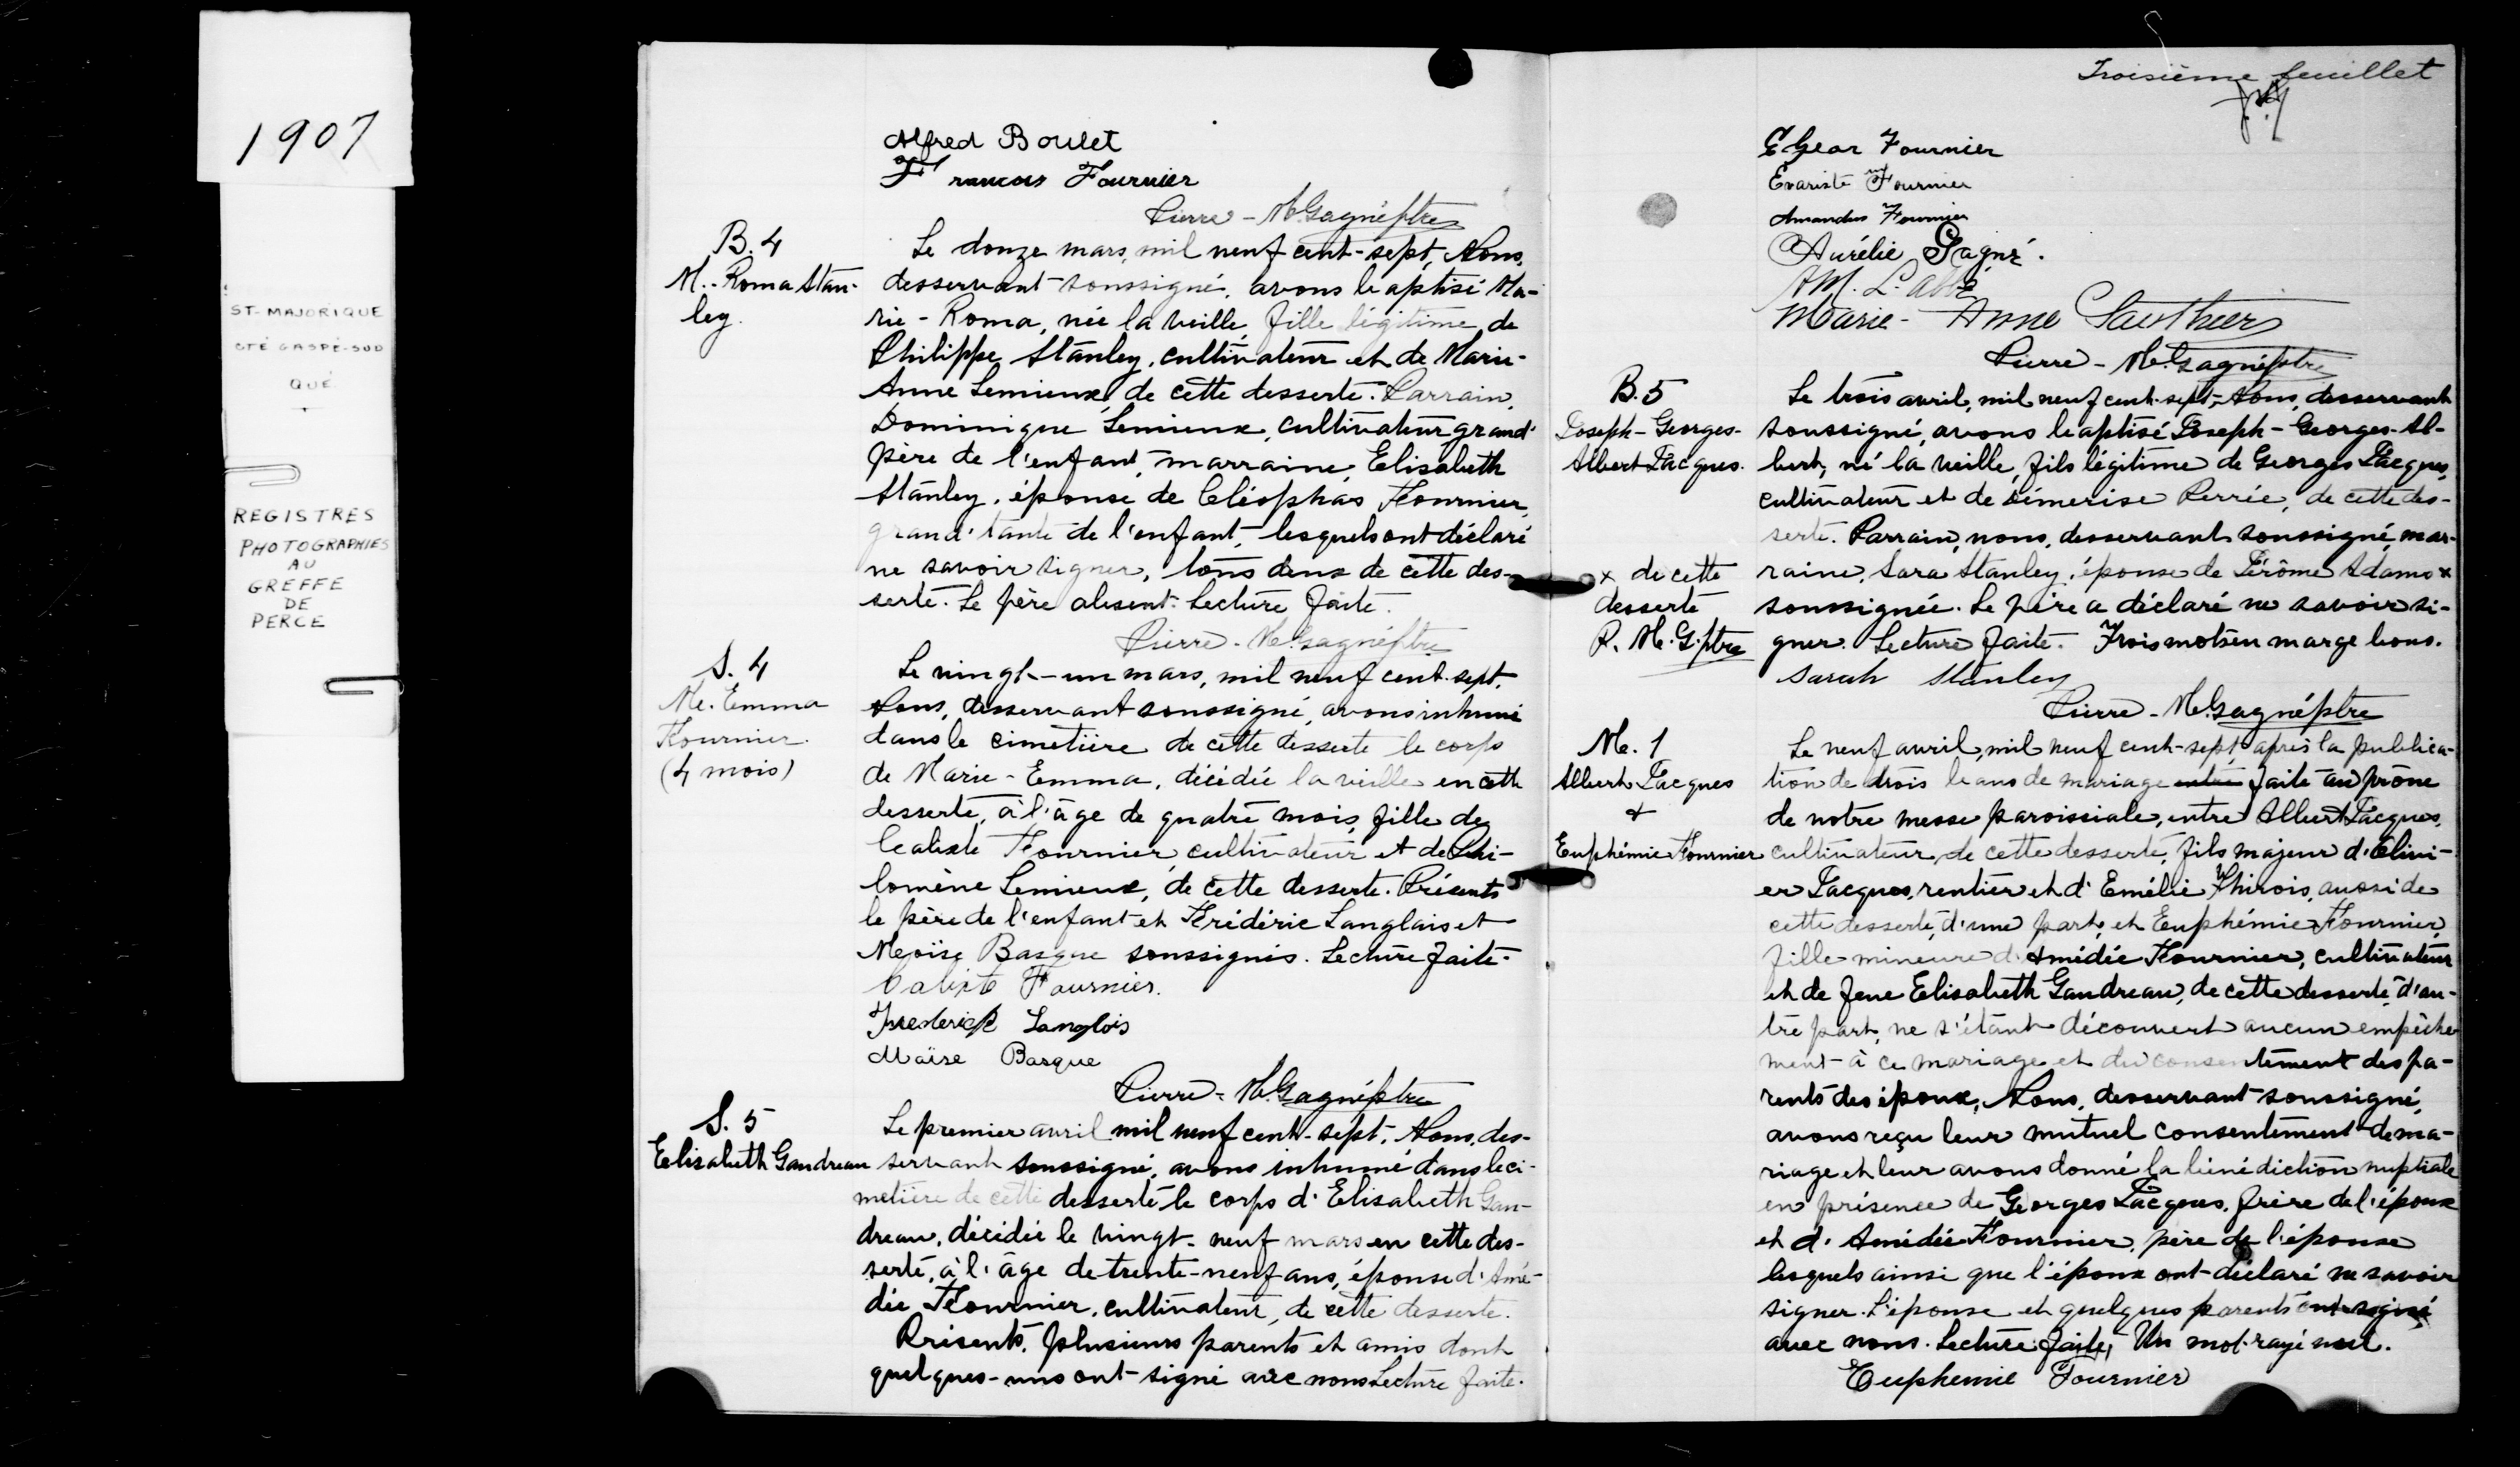 1907
ST-MAJORIQUE
CTÉ GASPÉ-SUD
QUÉ
REGISTRES
PHOTOGRAPHIES
AU
GREFFE
DE
PERCE
Alfred Boulet
Francois Fournier
Pierre-M. Gagné ptre
B. 4
M.-Roma Stan-
ley.
Le douze mars, mil neuf cent-sept, Nous,
desservant soussigné, avons baptisé Ma-
rie-Roma, née la veille, fille légitime de
Philippe Stanley, cultivateur et de Marie-
Anne Lemieux, de cette desserte. Parrain,
Dominique Lemieux, cultivateur grand'
père de l'enfant, marraine, Elisabeth
Stanley, épouse de Cléophas Fournier,
grand'tante de l'enfant, lesquels ont déclaré
ne savoir signer, tous deux de cette des-
serte. Le père absent. Lecture faite.
Pierre-M. Gagné ptre
S. 4
M. Emma
Fournier.
(4 mois)
Le vingt-un mars, mil neuf cent-sept,
Nous, desservant soussigné, avons inhumé
dans le cimetière de cette desserte le corps
de Marie-Emma, décédée la veille en cette
desserte, à l'âge de quatre mois, fille de
Calixte Fournier cultivateur et de Phi-
lomène Lemieux, de cette desserte. Présents
le père de l'enfant et Frédéric Langlais et
Moïse Basque soussignés. Lecture faite.
Calixte Fournier.
Frederick Langlois
Maïse Basque
Pierre-M. Gagné ptre
S. 5
Elisabeth Gaudreau
Le premier avril mil neuf cent-sept, Nous, des-
servant soussigné, avons inhumé dans le ci-
metière de cette desserte le corps d'Elisabeth Gau-
dreau, décédée le vingt-neuf mars en cette des-
serte, à l'âge de trente-neuf ans, épouse d'Amé-
dée Fournier, cultivateur, de cette desserte.
Présents, plusieurs parents et amis dont
quelques-uns ont signé avec nous Lecture faite.
Troisième feuillet
Elgear Fournier
Evariste Fournier
Amandus Fournier
Aurélie Gagné.
AM. L'abbé
Marie-Anne Gauthier
Pierre-M. Gagné ptre
B. 5
Joseph-Georges-
Albert Jacques.
Le trois avril, mil neuf cent-sept, Nous, desservant
soussigné, avons baptisé Joseph-Georges-Al-
bert, né la veille, fils légitime de Georges Jacques,
cultivateur et de Démerise Perrée, de cette des-
serte. Parrain, nous, desservant soussigné, mar-
raine, Sara Stanley, épouse de Jérôme Adams x
soussignée. Le père a déclaré ne savoir si-
gner. Lecture faite. Trois mots en marge bons.
x de cette
desserte
P. M. G. ptre
Sarah Stanley
Pierre-M. Gagné ptre
M. 1
Albert Jacques
+
Euphémie Fournier
Le neuf avril, mil neuf cent-sept, après la publica-
tion de trois bans de mariage entre faite au prône
de notre messe paroissiale, entre Albert Jacques,
cultivateur, de cette desserte, fils majeur d'Olivi-
er Jacques, rentier et d'Emélie Thivois, aussi de
cette desserte, d'une part, et Euphémie Fournier,
fille mineure d'Amédée Fournier, cultivateur
et de feue Elisabeth Gaudreau, de cette desserte, d'au-
tre part, ne s'étant découvert aucun empêche-
ment à ce mariage et du consentement des pa-
rents des époux, Nous, desservant soussigné,
avons reçu leur mutuel consentement de ma-
riage et leur avons donné la bénédiction nuptiale
en présence de Georges Jacques, frère de l'époux
et d'Amédée Fournier, père de l'épouse
lesquels ainsi que l'époux ont déclaré ne savoir
signer. L'épouse et quelques parents ont signé
avec nous. Lecture faite, Un mot rayé nul.
Euphemie Fournier